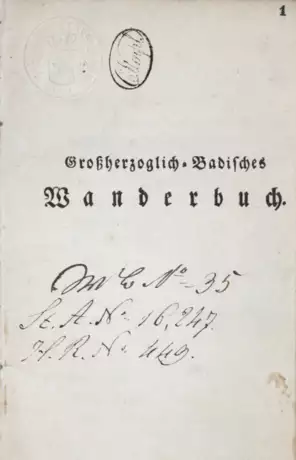 1
Großherzoglich-Badisches
Wanderbuch.
No 35
St. A. No 16,247.
H. R. No 449.